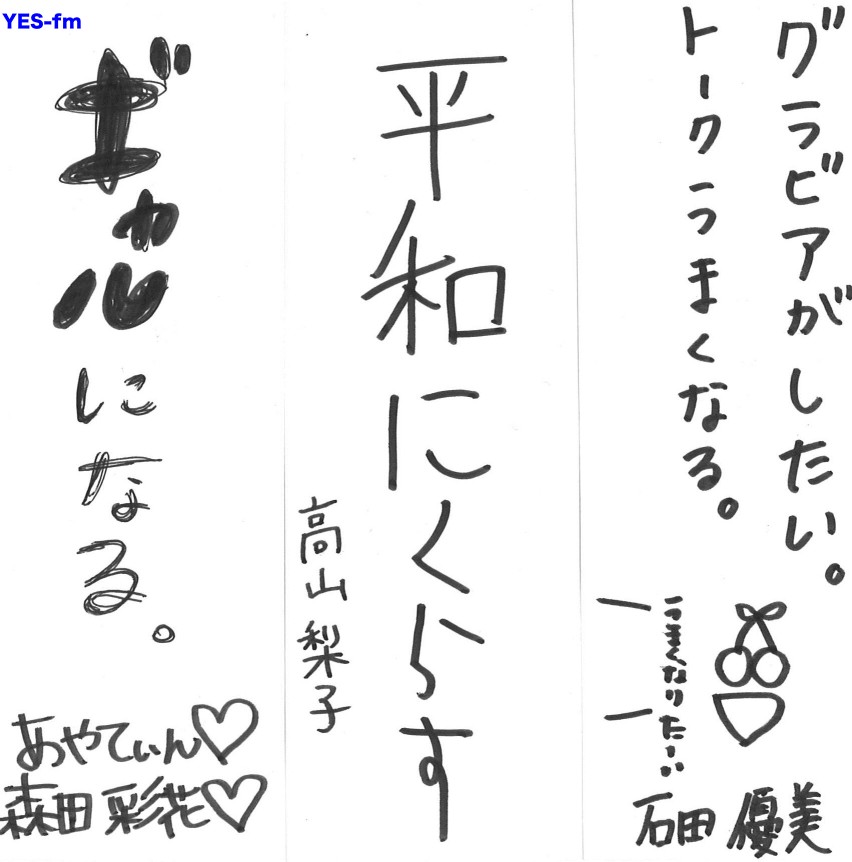 YES-fm
グラビアがしたい。
トークうまくなる。
うまくなりたーい
石田 優美
平和にくらす
高山 梨子
ギャルになる。
あやてぃん♡
森田 彩花♡